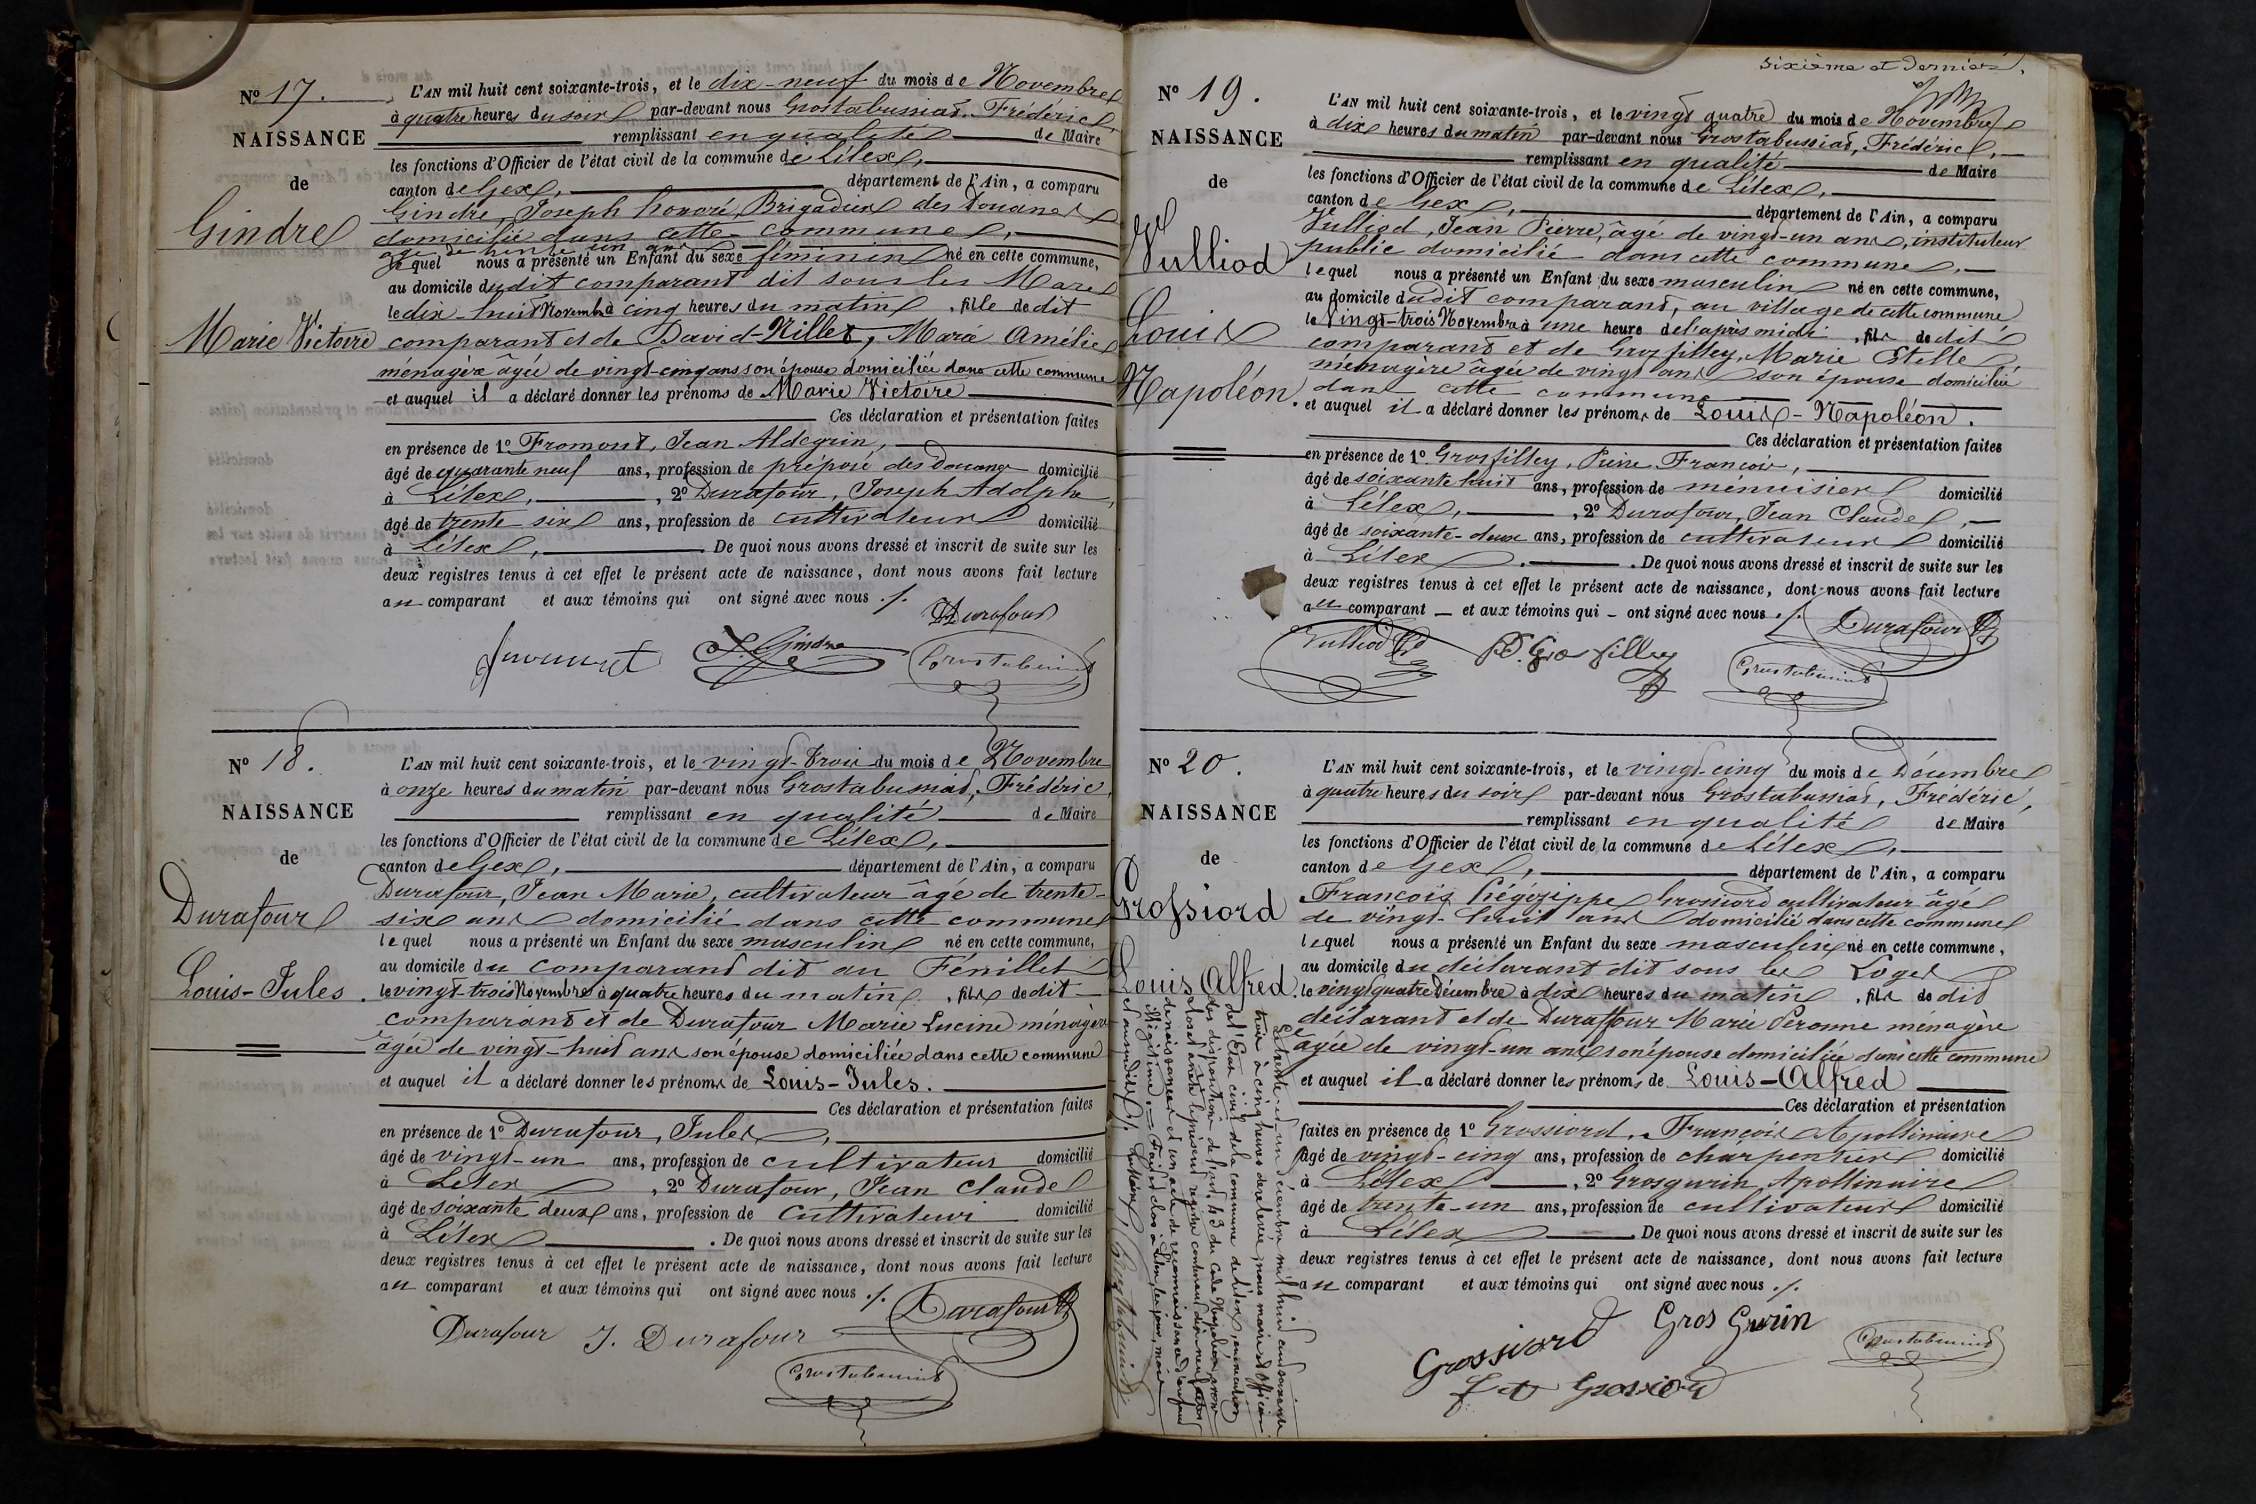 N° 17.
NAISSANCE
de
Gindre
Marie Victoire
L'AN mil huit cent soixante-trois, et le dix-neuf du mois de Novembre
à quatre heures du soir par-devant nous Grostabussiat, Frédéric,
remplissant en qualité de Maire
les fonctions d'Officier de l'état civil de la commune de Lélex,
canton de Gex, département de l'Ain, a comparu
Gindre, Joseph honoré, Brigadier des Douanes
domicilié dans cette commune,
âgé de trente un ans
le quel nous a présenté un Enfant du sexe féminin né en cette commune,
au domicile dudit comparant dit sous les Mares
le dix-huit Novembre à cinq heures du matin, fille de dit
comparant et de David-Nillet, Marie Amélie
ménagère âgée de vingt-cinq ans son épouse domiciliée dans cette commune
et auquel il a déclaré donner les prénoms de Marie Victoire
Ces déclaration et présentation faites
en présence de 1° Fromont, Jean Aldegrin,
âgé de quarante neuf ans, profession de préposé des Douanes domicilié
à Lélex, , 2° Durafour, Joseph Adolphe,
âgé de trente six ans, profession de cultivateur domicilié
à Lélex, . De quoi nous avons dressé et inscrit de suite sur les
deux registres tenus à cet effet le présent acte de naissance, dont nous avons fait lecture
au comparant et aux témoins qui ont signé avec nous ./.
Durafour
J. Gindre
Grostabussiat
N° 18.
NAISSANCE
de
Durafour
Louis-Jules.
L'AN mil huit cent soixante-trois, et le vingt-trois du mois de Novembre
à onze heures du matin par-devant nous Grostabussiat, Frédéric,
remplissant en qualité de Maire
les fonctions d'Officier de l'état civil de la commune de Lélex,
canton de Gex, département de l'Ain, a comparu
Durafour, Jean Marie, cultivateur âgé de trente-
six ans domicilié dans cette commune
le quel nous a présenté un Enfant du sexe masculin né en cette commune,
au domicile du comparant dit au Fénillet
le vingt-trois Novembre à quatre heures du matin, fils de dit
comparant et de Durafour Marie Lucine ménagère
âgée de vingt-huit ans son épouse domiciliée dans cette commune
et auquel il a déclaré donner les prénoms de Louis-Jules.
Ces déclaration et présentation faites
en présence de 1° Durafour, Jules,
âgé de vingt-un ans, profession de cultivateur domicilié
à Lélex , 2° Durafour, Jean Claude
âgé de soixante deux ans, profession de cultivateur domicilié
à Lélex . De quoi nous avons dressé et inscrit de suite sur les
deux registres tenus à cet effet le présent acte de naissance, dont nous avons fait lecture
au comparant et aux témoins qui ont signé avec nous ./.
Durafour
Durafour J. Durafour
Grostabussiat
sixième et dernier.
N° 19.
NAISSANCE
de
Vulliod
Louis
Napoléon.
L'AN mil huit cent soixante-trois, et le vingt quatre du mois de Novembre
à dix heures du matin par-devant nous Grostabussiat, Frédéric,
remplissant en qualité de Maire
les fonctions d'Officier de l'état civil de la commune de Lélex,
canton de Gex, département de l'Ain, a comparu
Vulliod, Jean Pierre, âgé de vingt-un ans, instituteur
public domicilié dans cette commune.
lequel nous a présenté un Enfant du sexe masculin né en cette commune,
au domicile dudit comparant, au village de cette commune
le Vingt-trois Novembre à une heure de l'après midi, fils de dit
comparant et de Grosfilley, Marie Estelle,
ménagère âgée de vingt ans son épouse domiciliée
dans cette commune
et auquel il a déclaré donner les prénoms de Louis-Napoléon.
Ces déclaration et présentation faites
en présence de 1° Grosfilley, Pierre François,
âgé de soixante huit ans, profession de ménuisier domicilié
à Lélex, , 2° Durafour, Jean Claude,
âgé de soixante-deux ans, profession de cultivateur domicilié
à Lélex . De quoi nous avons dressé et inscrit de suite sur les
deux registres tenus à cet effet le présent acte de naissance, dont nous avons fait lecture
au comparant et aux témoins qui ont signé avec nous ./.
Durafour
Vulliod P. Gros filley
Grostabussiat
N° 20.
NAISSANCE
de
Grossiord
Louis Alfred.
L'AN mil huit cent soixante-trois, et le vingt-cinq du mois de Décembre
à quatre heures du soir par-devant nous Grostabussiat, Frédéric,
remplissant en qualité de Maire
les fonctions d'Officier de l'état civil de la commune de Lélex,
canton de Gex, département de l'Ain, a comparu
François Hégézippe Grossiord cultivateur âgé
de vingt-huit ans domicilié dans cette commune
lequel nous a présenté un Enfant du sexe masculin né en cette commune,
au domicile du déclarant dit sous les Loges
le vingt quatre Décembre à dix heures du matin, fils de dit
déclarant et de Duraffour Marie Peronne ménagère
âgée de vingt-un ans son épouse domiciliée dans cette commune
et auquel il a déclaré donner les prénoms de Louis-Alfred
Ces déclaration et présentation
faites en présence de 1° Grossiord, François Apollinaire
âgé de vingt-cinq ans, profession de charpentier domicilié
à Lélex , 2° Grosgurin, Apollinaire
âgé de trente-un ans, profession de cultivateur domicilié
à Lélex . De quoi nous avons dressé et inscrit de suite sur les
deux registres tenus à cet effet le présent acte de naissance, dont nous avons fait lecture
au comparant et aux témoins qui ont signé avec nous ./.
Gros Gurin
Grossiord
Grossiord
Grostabussiat
Le trente-et-un décembre mil huit cent soixante
trois à cinq heures de relevée, nous maire et officier
de l'Etat civil de la commune de Lélex, en exécution
des dispositions de l'art. 43 du Code Napoléon, avons
clos et arrêté le présent registre contenant dix-neuf actes
de naissances et un acte de reconnaissance d'enfant
légitime. Fait et clos à Lélex, les jour, mois
et an susdits ./. Le Maire, Grostabussiat